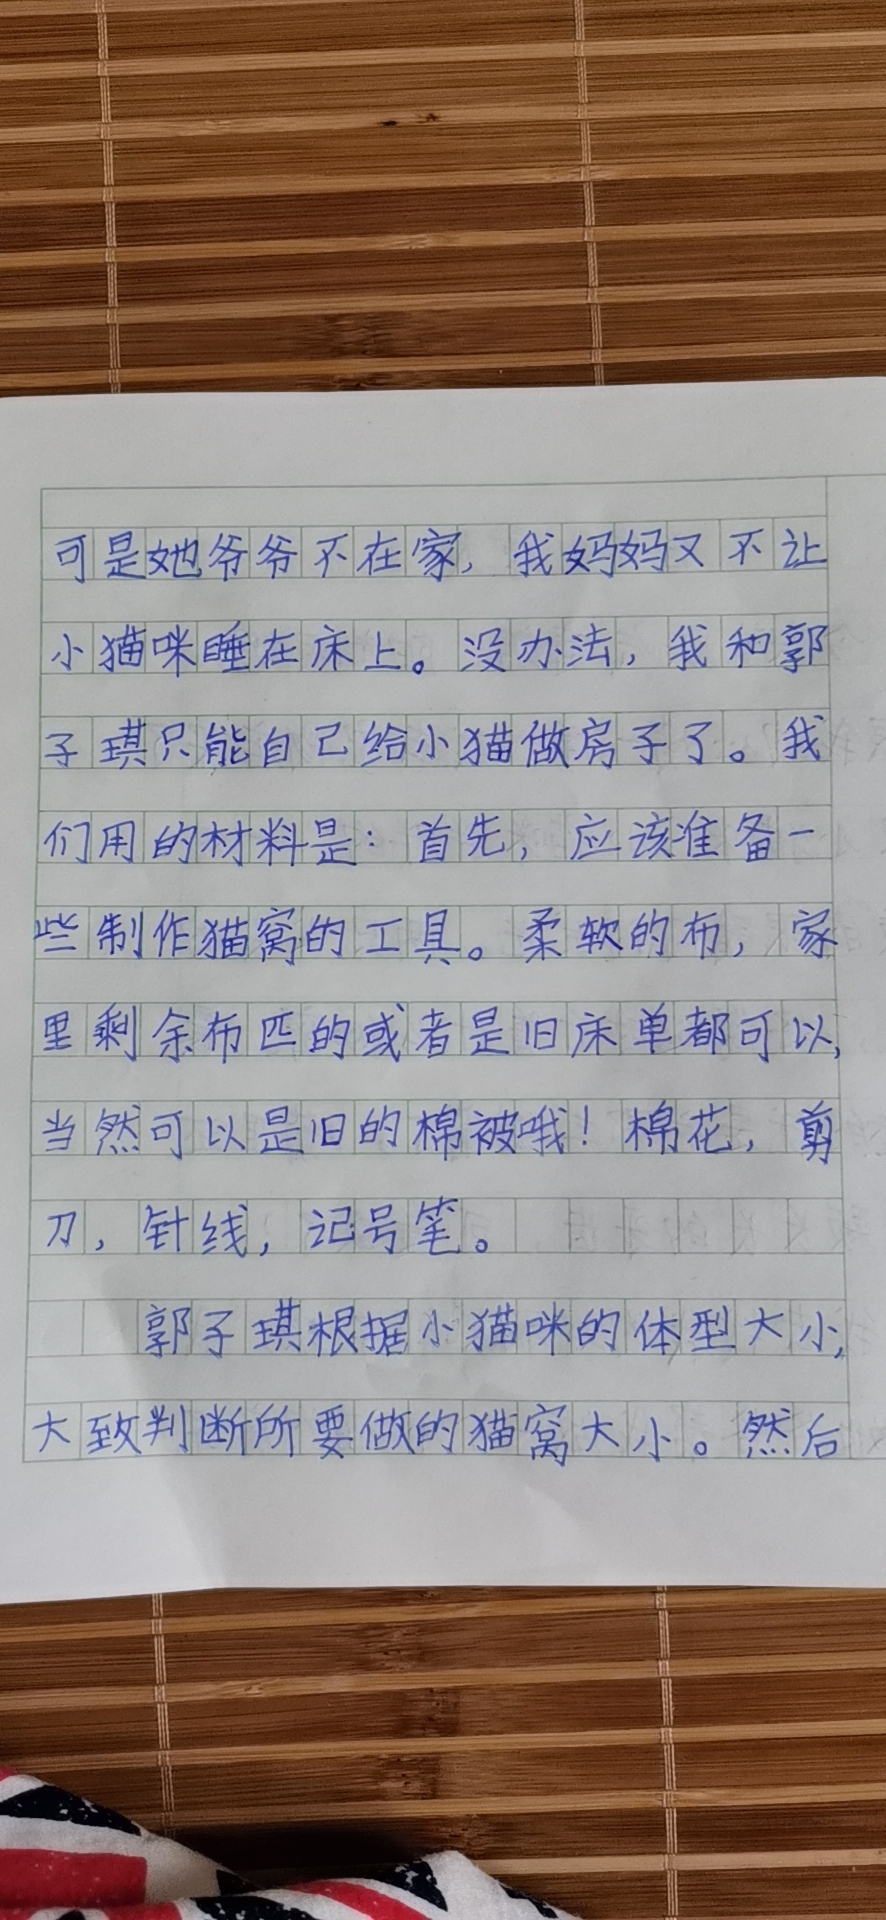 可是她爷爷不在家，我妈妈又不让
小猫咪睡在床上。没办法，我和郭
子琪只能自己给小猫做房子了。我
们用的材料是：首先，应该准备一
些制作猫窝的工具。柔软的布，家
里剩余布匹的或者是旧床单都可以，
当然可以是旧的棉被哦！棉花，剪
刀，针线，记号笔。
郭子琪根据小猫咪的体型大小，
大致判断所要做的猫窝大小。然后